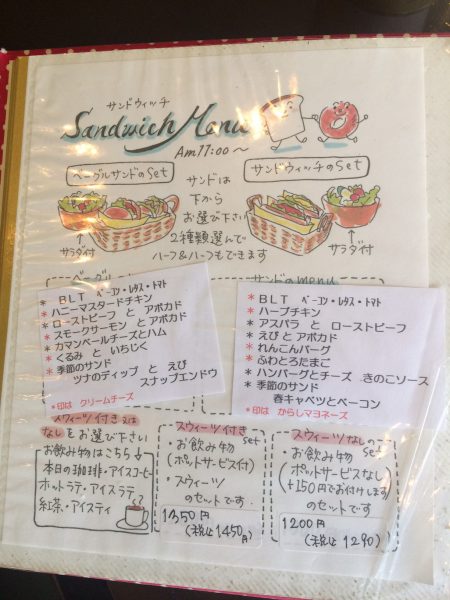 サンドウィッチ
Sandwich Menu
Am11:00〜
ベーグルサンドのset
サンドウィッチのset
サンドは
下から
お選び下さい
2種類選んで
ハーフ&ハーフもできます
サラダ付
サラダ付
ベーグル
* BLT ベーコン・レタス・トマト
* ハニーマスタードチキン
* ローストビーフ と アボカド
* スモークサーモン と アボカド
* カマンベールチーズとハム
* くるみ と いちじく
* 季節のサンド
ツナのディップ と えび
スナップエンドウ
*印は クリームチーズ
サンドのmenu
* BLT ベーコン・レタス・トマト
* ハーブチキン
* アスパラ と ローストビーフ
* えび と アボカド
* れんこんバーグ
* ふわとろたまご
* ハンバーグとチーズ きのこソース
* 季節のサンド
春キャベツとベーコン
*印は からしマヨネーズ
スウィーツ付き又は
なしをお選び下さい
お飲み物はこちら↓
本日の珈琲・アイスコーヒー
ホットラテ・アイスラテ
紅茶・アイスティ
スウィーツ付きset
・お飲み物
(ポットサービス付)
・スウィーツ
のセットです
1350円
(税込1450円)
スウィーツなしのset
・お飲み物
(ポットサービスなし)
(+150円でお付けします)
のセットです
1200円
(税込1290)